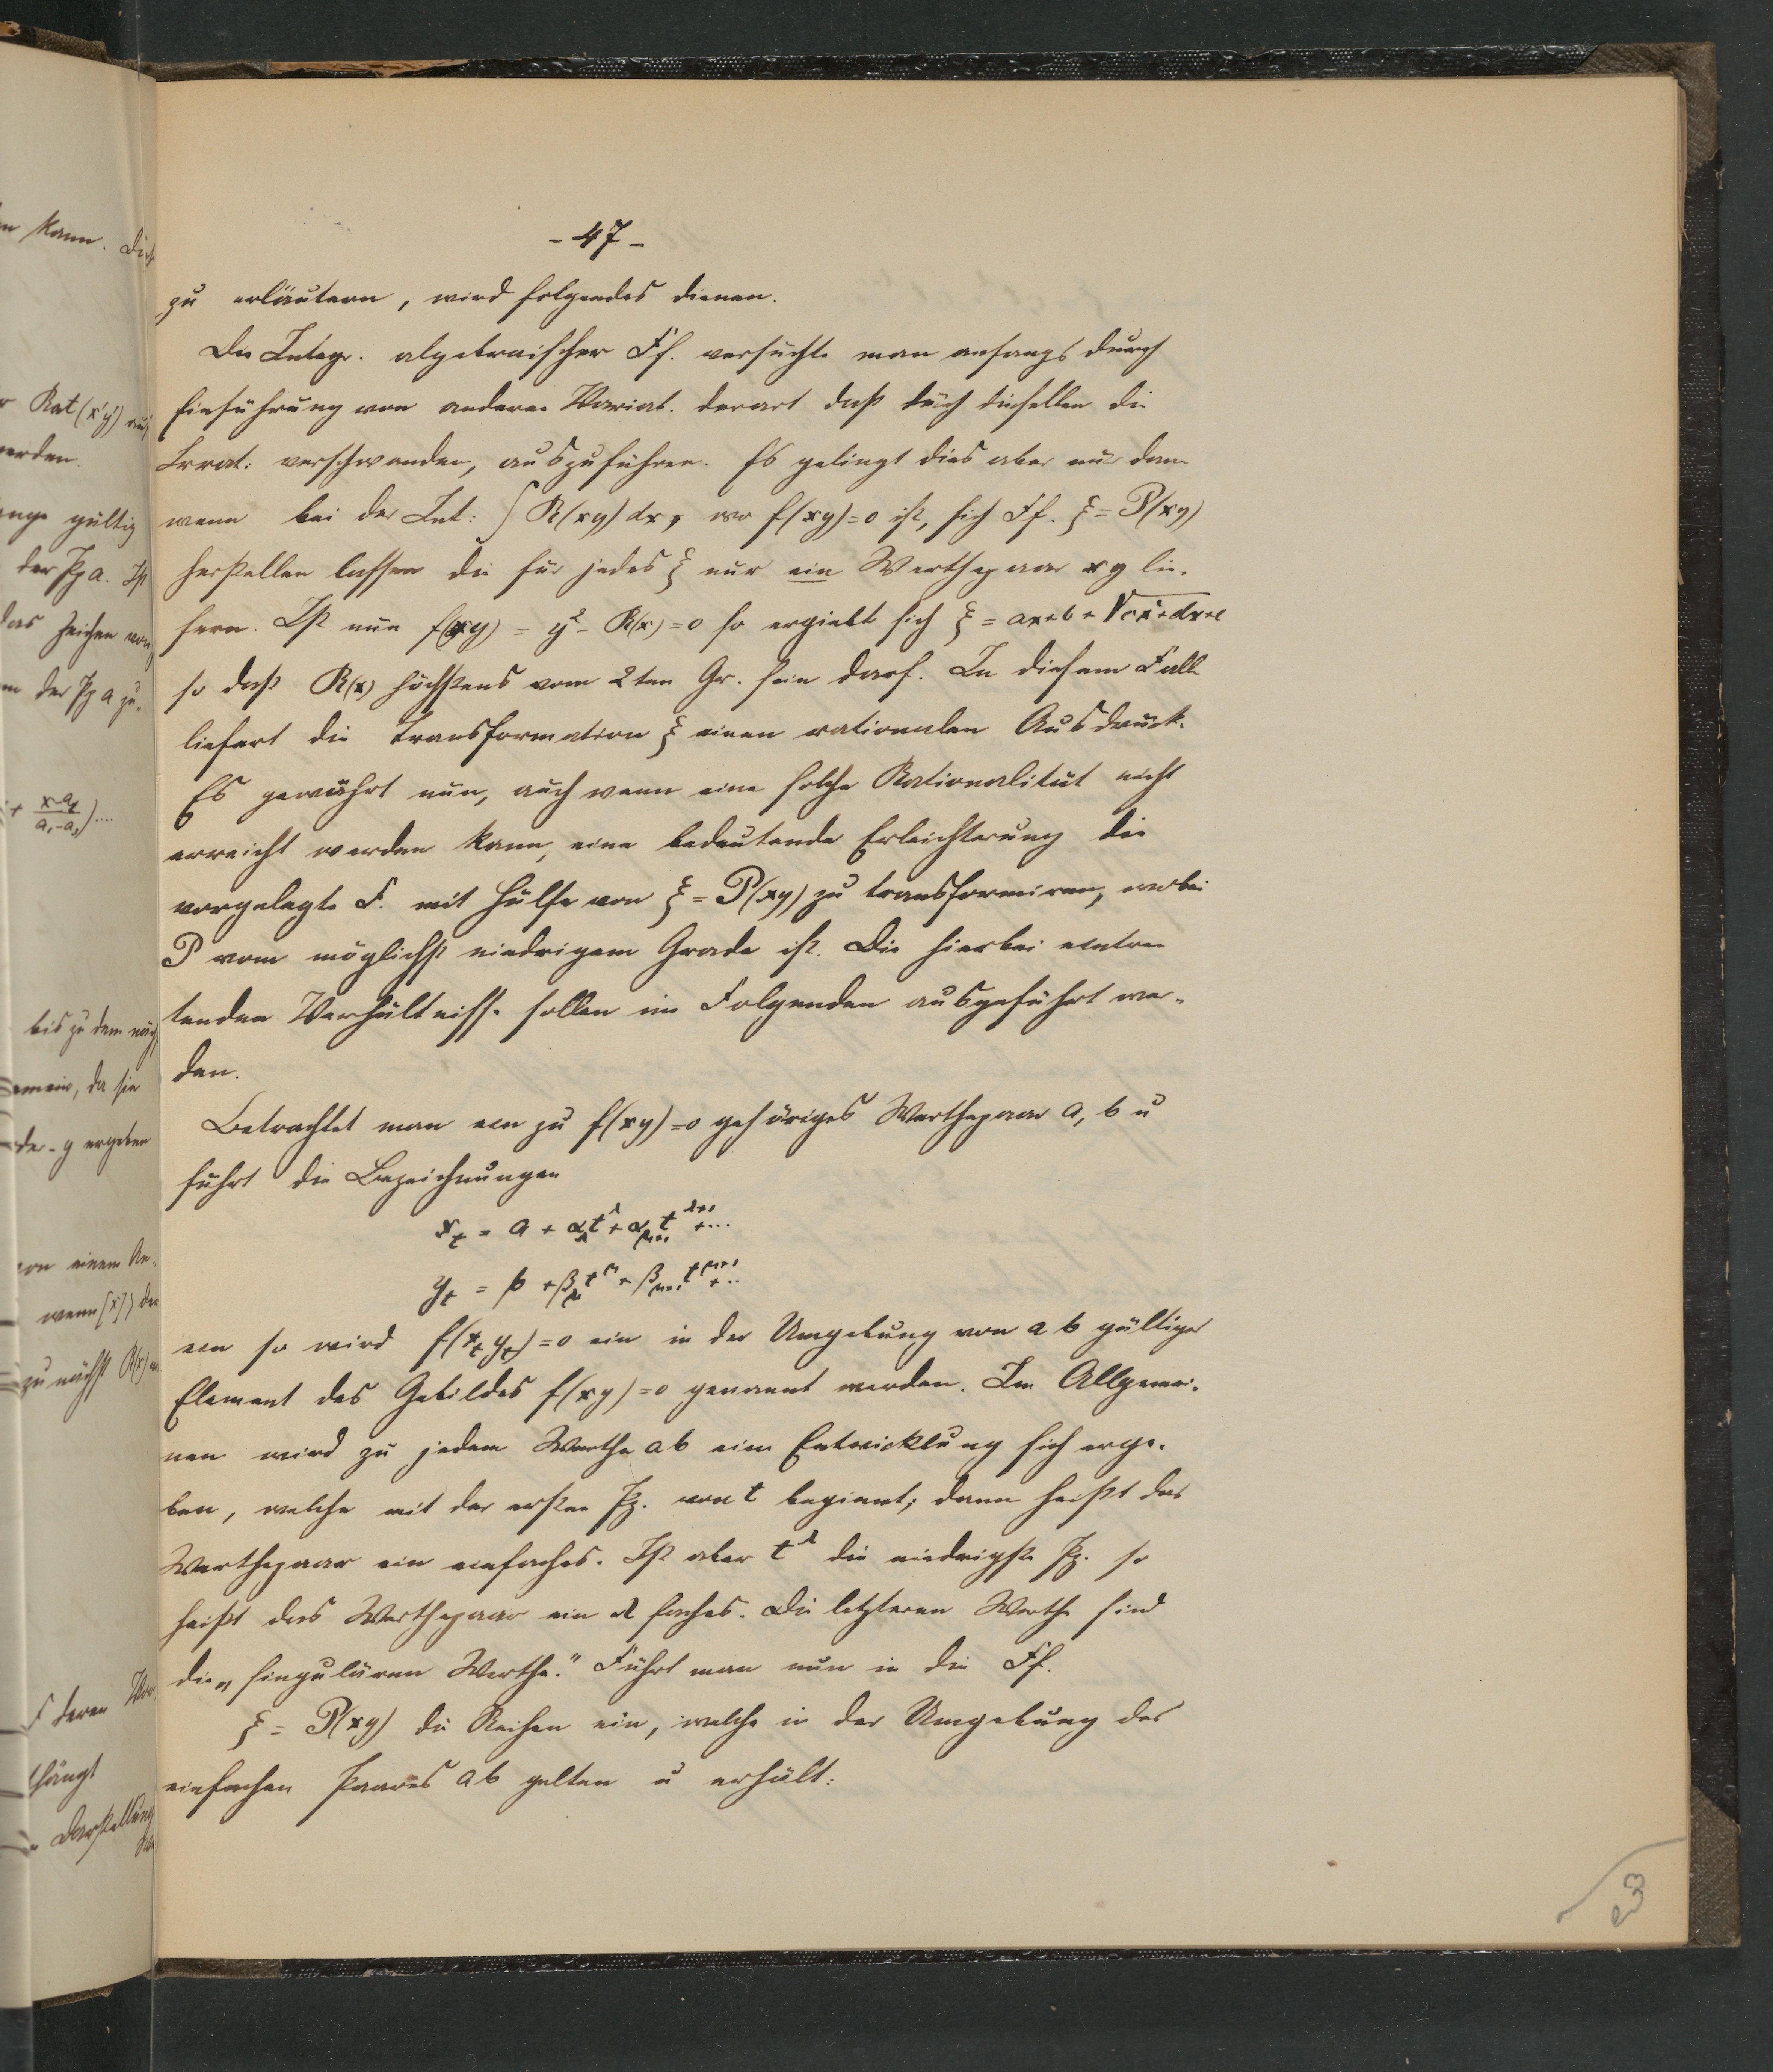 - 47 -
zu erläutern, wird folgendes dienen.
Die Integr. algebraischer Ff. versuchte man anfangs durch
Einführung von anderen Variab. derart daß durch dieselben die
Irrat: verschwanden, auszuführen. Es gelingt dies aber nur dann
wenn bei der Int: ∫ R(xy) dx, wo f(xy)=0 ist, sich Ff. ξ = P(xy)
herstellen lassen die für jedes ξ nur ein Werthepaar xy lie-
fern. Ist nun f(xy) = y² - R(x) = 0 so ergiebt sich ξ = ax+b+√cx²+dx+e
so daß R(x) höchstens vom 2ten Gr. sein darf. In diesem Falle
liefert die Transformation ξ einen rationalen Ausdruck.
Es gewährt nun, auch wenn eine solche Rationalität nicht
erreicht werden kann, eine bedeutende Erleichterung die
vorgelegte F. mit Hülfe von ξ = P(xy) zu transformiren, wobei
P vom möglichst niedrigem Grade ist. Die hierbei eintre
tenden Verhältnisse sollen im Folgenden ausgeführt wer-
den.
Betrachtet man ein zu f(xy)=0 gehöriges Werthepaar a, b u
führt die Bezeichnungen
x_t = a + α_λ t^λ + α_{λ+1} t^{λ+1} + ...
y_t = b + β_μ t^μ + β_{μ+1} t^{μ+1} + ..
ein so wird f(x_t y_t)=0 ein in der Umgebung von a b gültiges
Element des Gebildes f(xy)=0 genannt werden. Im Allgemei-
nen wird zu jedem Werthe ab eine Entwicklung sich erge-
ben, welche mit der ersten Pz. von t beginnt; dann heißt das
Werthepaar ein einfaches. Ist aber t^λ die niedrigste Pz. so
heißt das Werthepaar ein λ faches. Die letzteren Werthe sind
die „singulären Werthe." Führt man nun in die Ff.
ξ = P(xy) die Reihen ein, welche in der Umgebung des
einfachen Paares ab gelten u erhält: